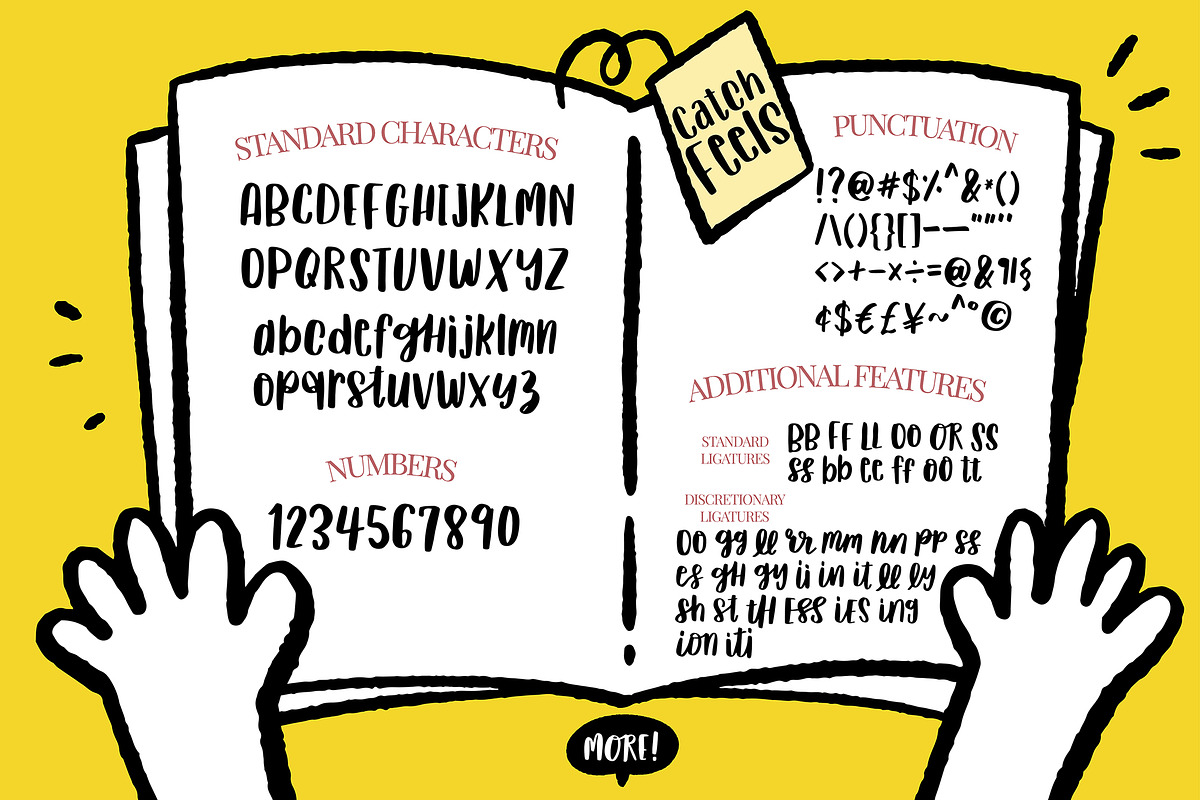 STANDARD CHARACTERS
ABCDEFGHIJKLMN
OPQRSTUVWXYZ
abcdefgHijklmn
opqrstuvwxyz
NUMBERS
1234567890
Catch
Feels
PUNCTUATION
!?@#$%^&*()
/\(){}[]–—"""''
<>+−×÷=@&¶|§
¢$€£¥~^°©
ADDITIONAL FEATURES
STANDARD
LIGATURES
BB FF LL OO OR SS
ss bb ee ff oo tt
DISCRETIONARY
LIGATURES
OO gg ll rr mm nn pp ss
es gH gy ii in it ll ly
sh st tH ESS iES ing
ion iti
MORE!